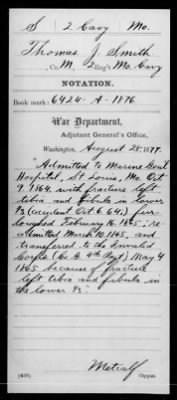 S 2 Cavy Mo.
Thomas J. Smith
Co. M, 2 Reg't Mo. Cavy
NOTATION.
Book mark: 6424-A-1876
War Department,
Adjutant General's Office,
Washington, August 28, 1877.
"Admitted to Marine Genl
Hospital, St Louis, Mo. Oct
9. 1864, with fracture left
tibia and fibula in lower
1/3 (accident Oct 6 64;) fur-
loughed February 16, 1865; re-
admitted March 10, 1865, and
transferred to the Invalid
Corps (Co. G. 4th Regt) May 4
1865 because of fracture
left tibia and fibula in
the lower 1/3."
Metcalf
Copyist.